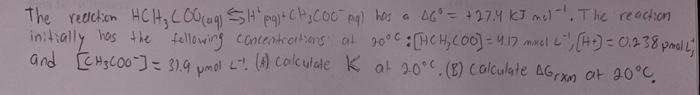 The reaction HCH3COO(aq) ⇆ H+(aq) + CH3COO-(aq) has a ΔG° = +27.4 kJ mol-1. The reaction
initially has the following concentrations at 20°C: [HCH3COO] = 4.17 mmol L-1, [H+] = 0.238 pmol L-1,
and [CH3COO-] = 31.9 μmol L-1. (A) Calculate K at 20°C. (B) Calculate ΔGrxn at 20°C.